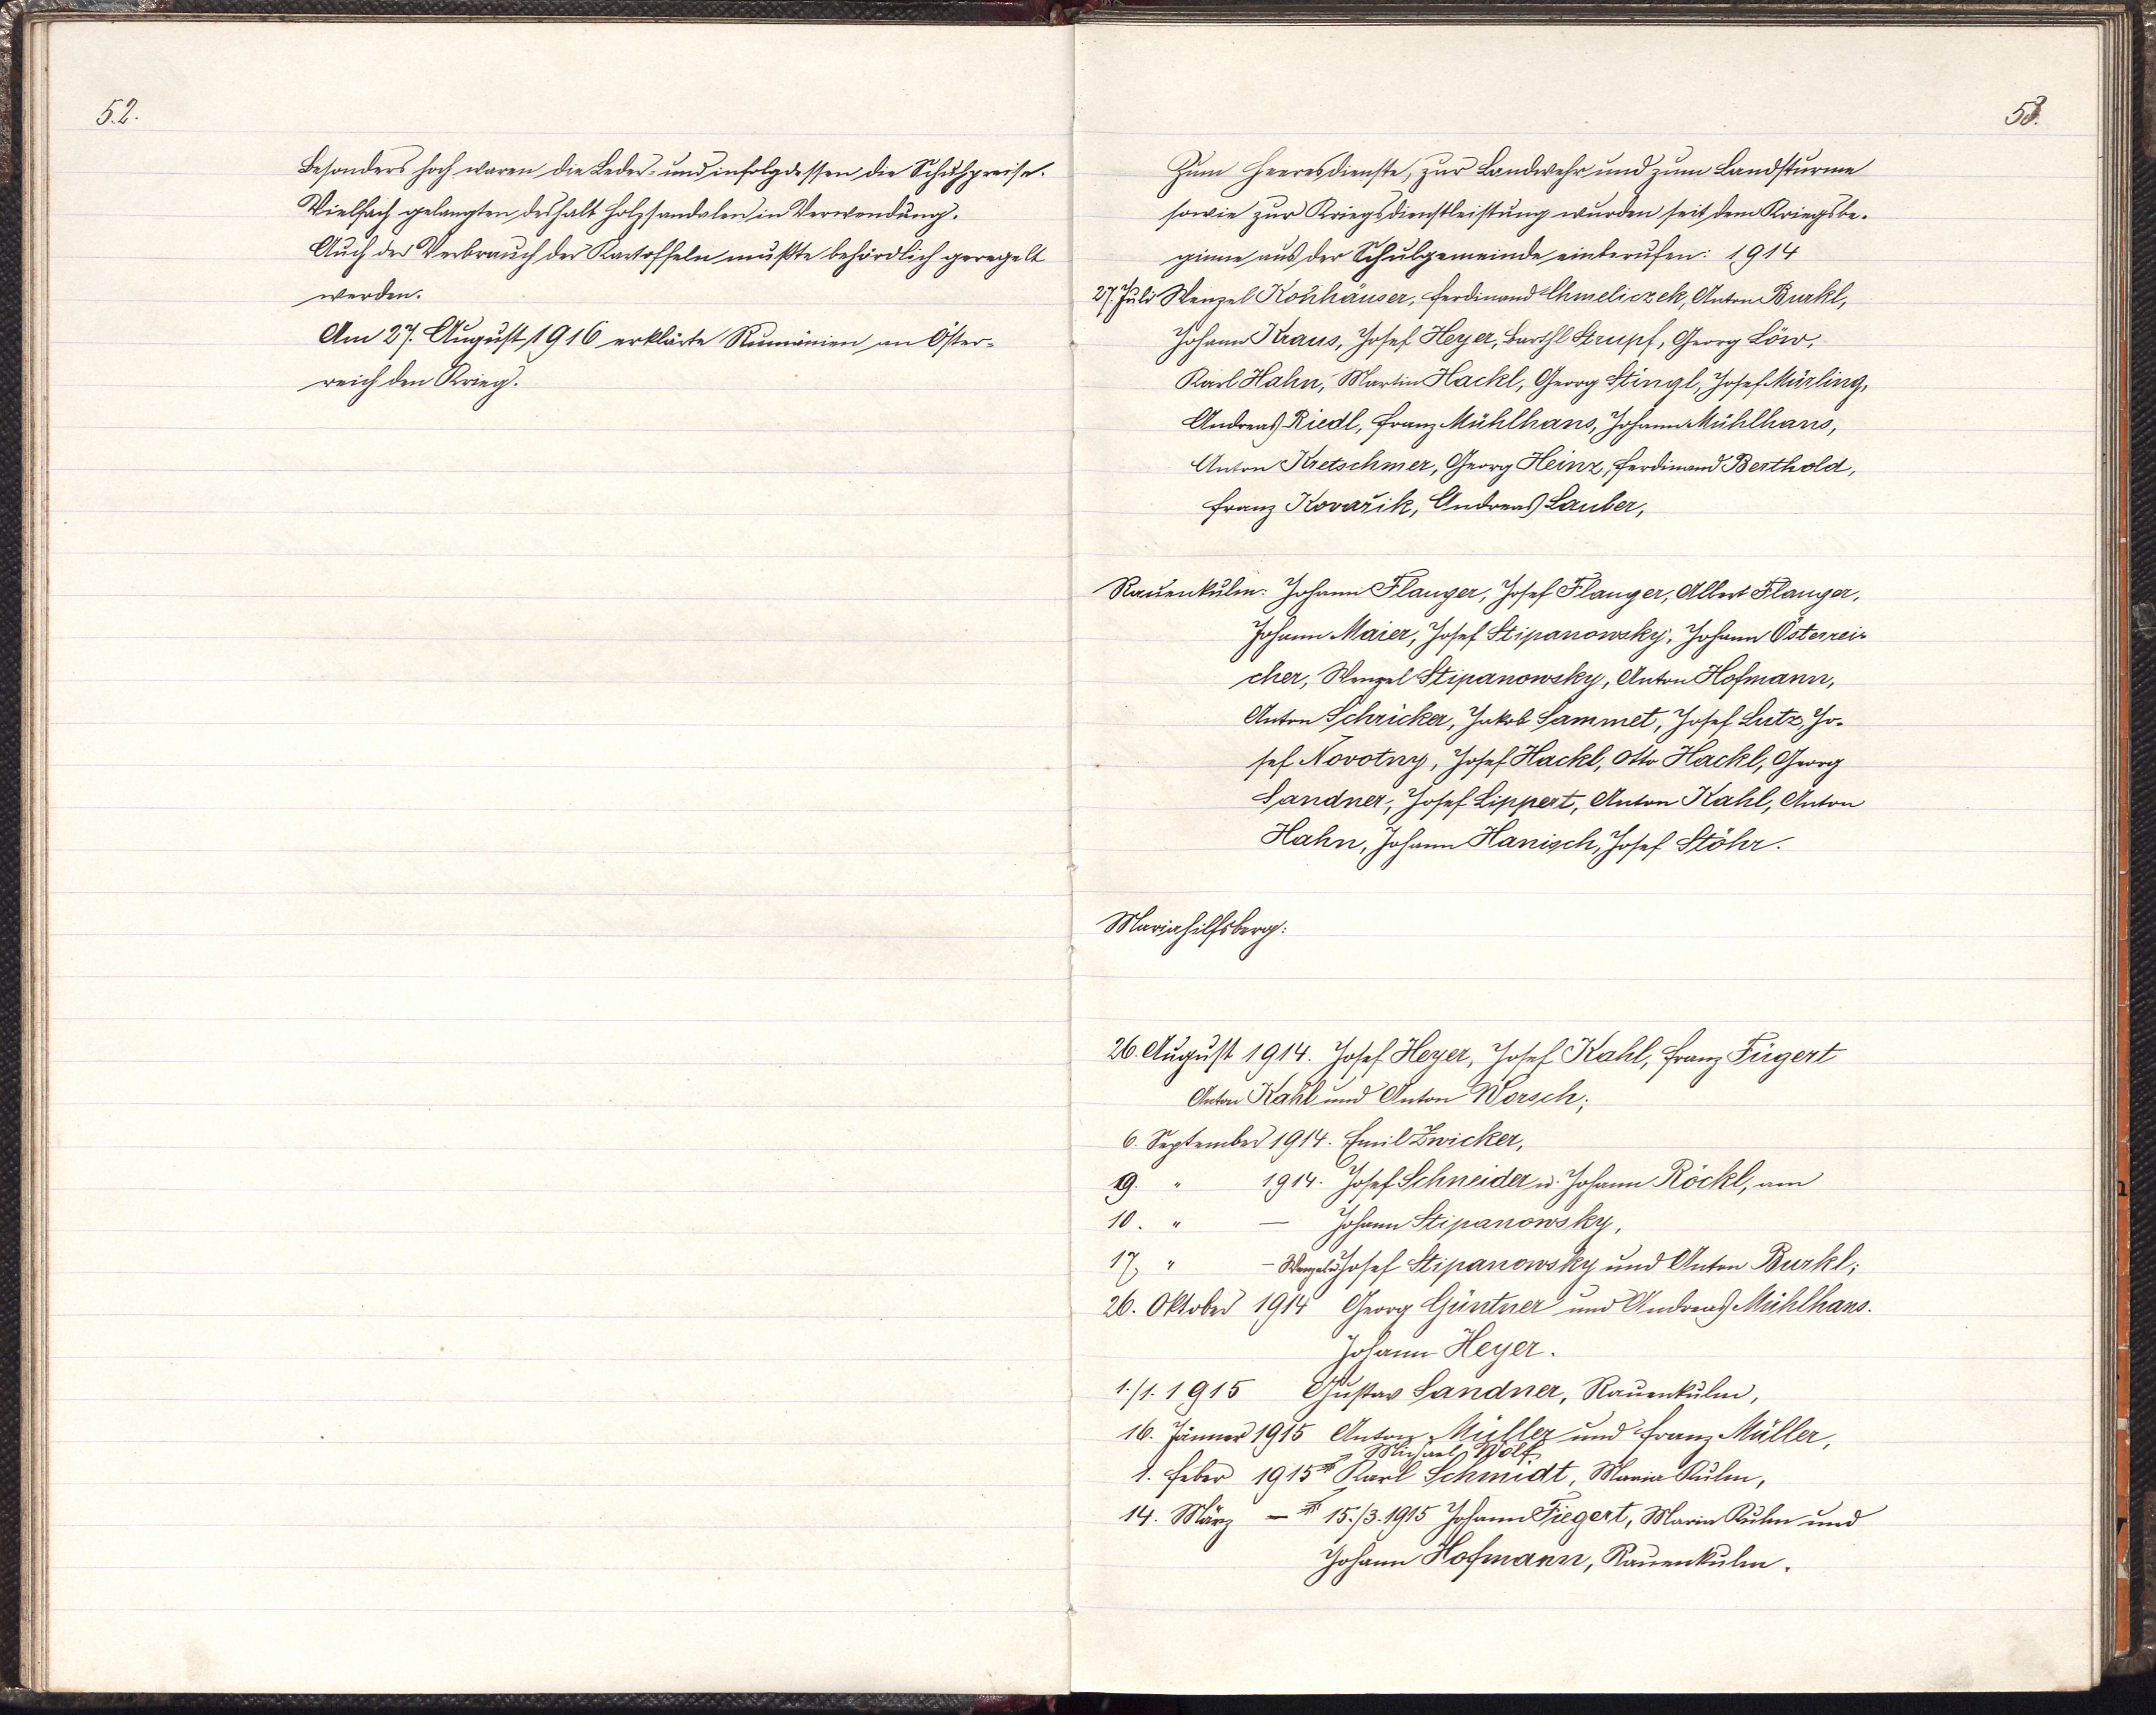 52.
Besonders hoch waren die Leder- und infolgdessen die Schuhpreise.
Vielfach gelangten deshalb Holzsandalen in Verwendung.
Auch der Verbrauch der Kartoffeln mußte behördlich geregelt
werden.
Am 27. August 1916 erklärte Rumänien an Öster-
reich den Krieg.
53.
Zum Heeresdienste, zur Landwehr und zum Landsturme
sowie zur Kriegsdienstleistung wurden seit dem Kriegsbe-
ginne aus der Schulgemeinde einberufen: 1914
27. Juli Wenzel Kohhäuser, Ferdinand Chmeliczek, Anton Burkl,
Johann Kraus, Josef Heyer, Barthl Strupf, Georg Löw,
Karl Hahn, Martin Hackl, Georg Stingl, Josef Mürling,
Andreas Riedl, Franz Mühlhans, Johann Mühlhans,
Anton Kretschmer, Georg Heinz, Ferdinand Berthold,
Franz Kovařik, Andreas Lauber,
Rauenkulm: Johann Flanger, Josef Flanger, Albert Flanger,
Johann Maier, Josef Stipanowsky, Johann Österrei-
cher, Wenzel Stipanowsky, Anton Hofmann,
Anton Schricker, Jakob Sammet, Josef Lutz, Jo-
sef Novotny, Josef Hackl, Otto Hackl, Georg
Sandner, Josef Lippert, Anton Kahl, Anton
Hahn, Johann Hanisch, Josef Stöhr.
Mariahilfsberg:
26. August 1914. Josef Heyer, Josef Kahl, Franz Fügert
Anton Kahl und Anton Worsch;
6. September 1914. Emil Zwicker,
9. " 1914. Josef Schneider u. Johann Röckl, am
10. " — Johann Stipanowsky,
17. " — Wenzel u. Josef Stipanowsky und Anton Burkl;
26. Oktober 1914 Georg Güntner und Andreas Mühlhans.
Johann Heyer.
1./1. 1915 Gustav Sandner, Rauenkulm,
16. Jänner 1915 Anton Müller und Franz Müller,
Michael Wolf
1. Feber 1915 Karl Schmidt, Maria Kulm,
14. März — 15./3. 1915 Johann Fiegert, Maria Kulm und
Johann Hofmann, Rauenkulm.